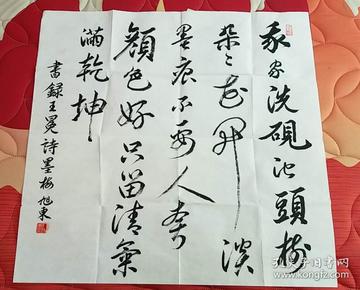 我家洗硯池頭樹
朵々花開淡
墨痕不要人夸
顔色好只留清氣
滿乾坤
書録王冕詩墨梅 旭東
孔夫子旧书网